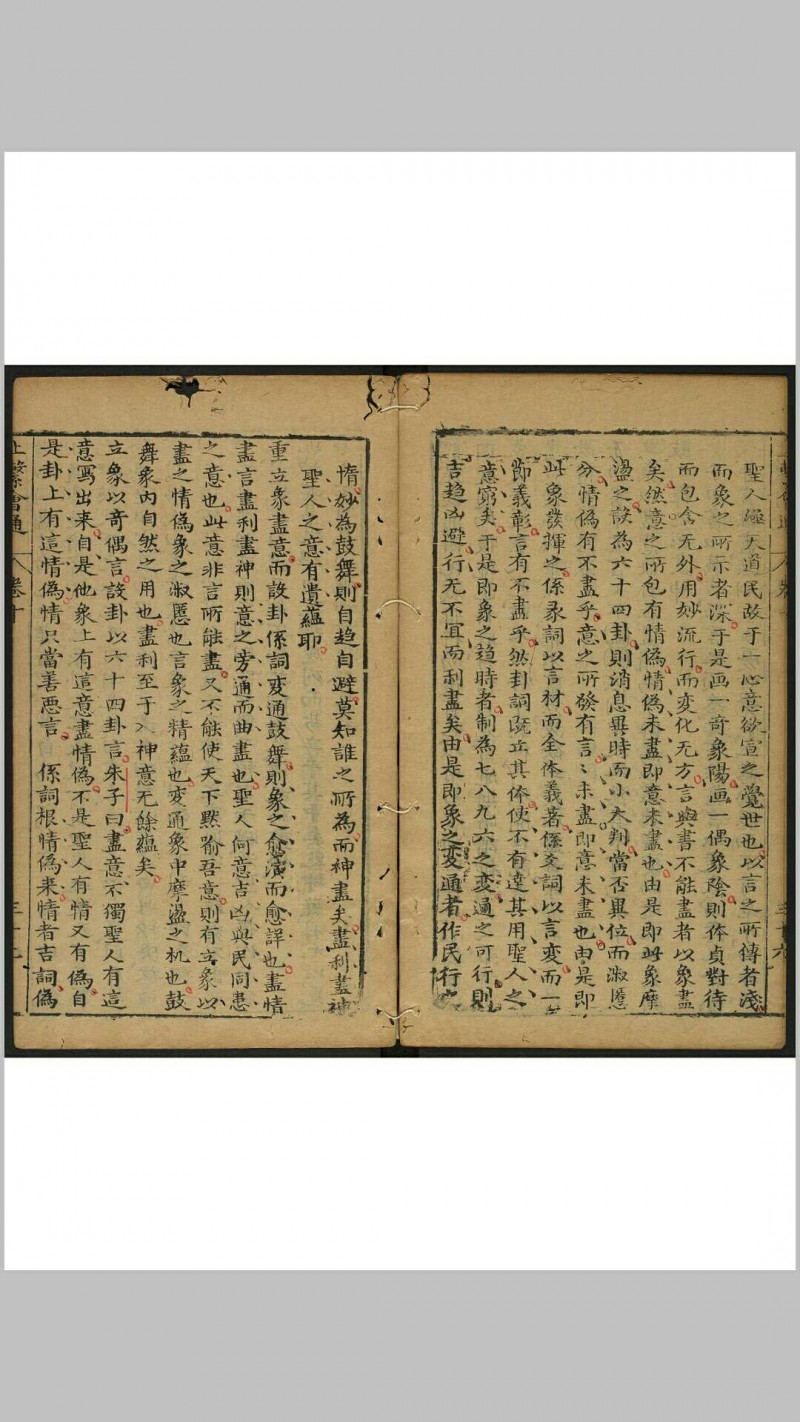 聖人極天道民故于一心意欲宣之覺世也以言之所傳者淺
而象之所示者深于是画一奇象陽画一偶象陰則体貞對待
而包含无外用妙流行而変化无方言與書不能盡者以象盡
矣然意之所包有情偽情偽未盡即意未盡也由是即此象摩
盪之設為六十四卦則消息異時而小大判當否異位而淑慝
分情偽有不盡乎意之所發有言〻未盡即意未盡也由是即
此象發揮之係彖詞以言材而全体義著係爻詞以言変而一
節義彰言有不盡乎然卦詞既立其体使不有達其用聖人之
意窮矣于是即象之趋時者制為七八九六之変通之可行則
吉趋凶避行无不宜而利盡矣由是即象之変通者作民行
惰妙為鼓舞則自趋自避莫知誰之所為而神盡矣盡利盡神
聖人之意有遺蘊耶
重立象盡意而設卦係詞変通鼓舞則象之愈演而愈詳也盡情
盡言盡利盡神則意之旁通而曲盡也聖人何意吉凶與民同患
之意也此意非言所能盡又不能使天下黙喻吾意則有立象以
盡之情偽象之淑慝也言象之精蘊也変通象中摩盪之机也鼓
舞象內自然之用也盡利至于入神意无餘蘊矣
立象以奇偶言設卦以六十四卦言朱子曰盡意不獨聖人有這
意寫出来自是他象上有這意盡情偽不是聖人有情又有偽自
是卦上有這情偽情只當善悪言 係詞根情偽来情者吉詞偽
上繫會通 卷十